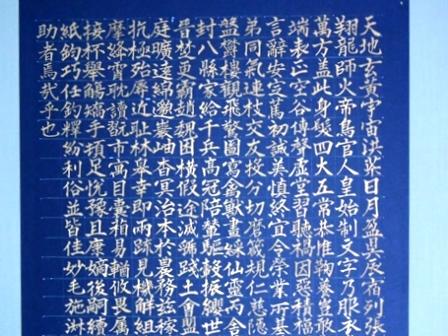 天地玄黄宇宙洪荒日月盈昃辰宿列張
翔龍師火帝鳥官人皇始制文字乃服衣
萬方盖此身髮四大五常恭惟鞠養豈敢
端表正空谷傳聲虚堂習聽禍因惡積福
言辭安定篤初誠美慎終宜令榮業所基
弟同氣連枝交友投分切磨箴規仁慈隱
盤鬱樓觀飛驚圖寫禽獸畫綵仙靈丙舍
封八縣家給千兵高冠陪輦驅轂振纓世
晉楚更霸趙魏困横假途滅虢踐土會盟
庭曠遠綿邈巖岫杳冥治本於農務兹稼
抗極殆辱近恥林皋幸即兩疏見機解組
摩絳霄耽讀翫市寓目囊箱易輶攸畏屬
接杯舉觴矯手頓足悦豫且康嫡後嗣續
紙鈞巧任釣釋紛利俗並皆佳妙毛施淑
助者焉哉乎也